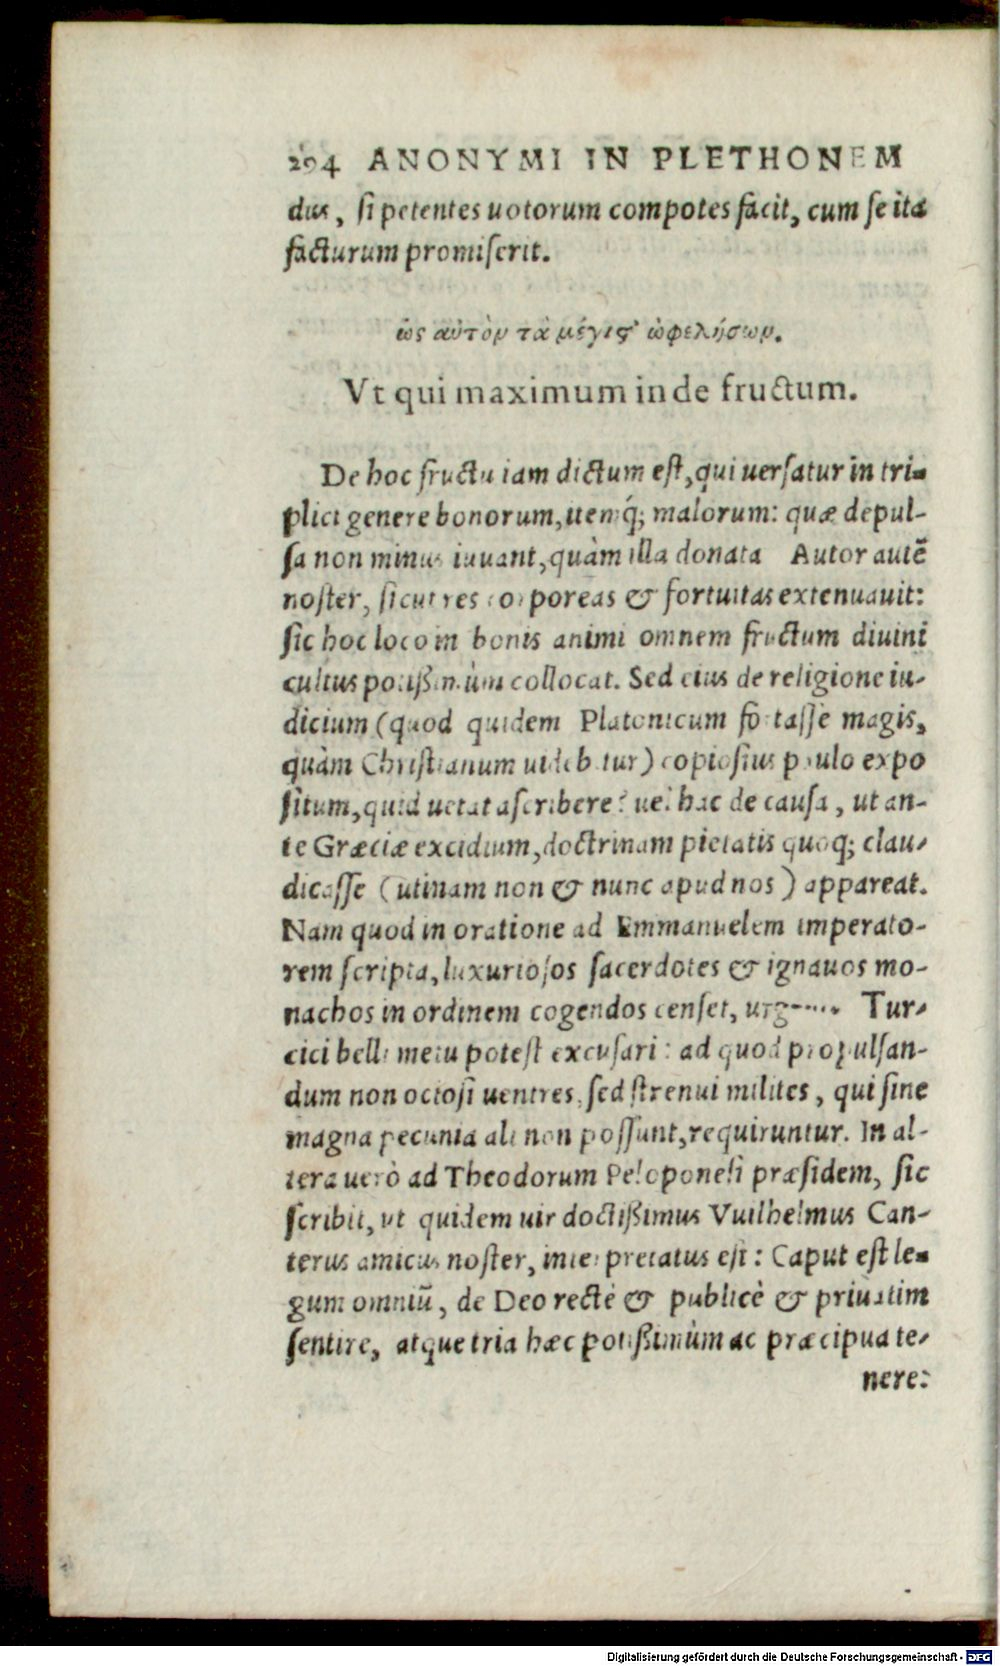 294 ANONYMI IN PLETHONEM
dus, si petentes uotorum compotes facit, cum se ita
facturum promiserit.
ὡς αὐτὸν τὰ μέγις' ὠφελήσων.
Vt qui maximum inde fructum.
De hoc fructu iam dictum est, qui uersatur in tri-
plici genere bonorum, itemq́; malorum: quæ depul-
sa non minus iuuant, quàm illa donata Autor autē
noster, sicut res corporeas & fortuitas extenuauit:
sic hoc loco in bonis animi omnem fructum diuini
cultus potißimùm collocat. Sed eius de religione iu-
dicium (quod quidem Platonicum fortasse magis,
quàm Christianum uidebitur) copiosius paulo expo
situm, quid uetat ascribere? uel hac de causa, ut an-
te Græciæ excidium, doctrinam pietatis quoq; clau-
dicasse (utinam non & nunc apud nos) appareat.
Nam quod in oratione ad Emmanuelem imperato-
rem scripta, luxuriosos sacerdotes & ignauos mo-
nachos in ordinem cogendos censet, Tur-
cici belli metu potest excusari: ad quod propulsan-
dum non ociosi uentres, sed strenui milites, qui sine
magna pecunia ali non possunt, requiruntur. In al-
tera uerò ad Theodorum Peloponesi præsidem, sic
scribit, ut quidem uir doctißimus Vuilhelmus Can-
terus amicus noster, interpretatus est: Caput est le-
gum omniū, de Deo rectè & publicè & priuatim
sentire, atque tria hæc potißimùm ac præcipua te-
nere:
Digitalisierung gefördert durch die Deutsche Forschungsgemeinschaft - DFG